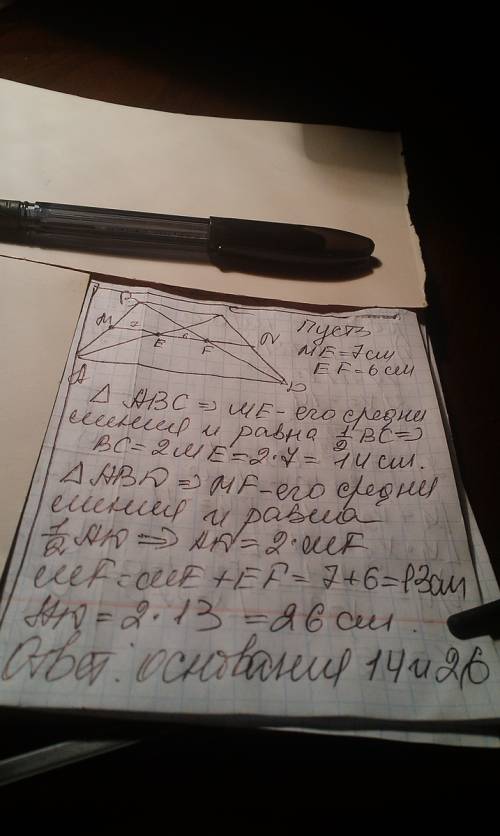 B
M
7
E
6
F
N
A
D
Пусть
ME=7см
EF=6см
△ ABC ⇒ ME - его средн
линия и равна 1/2 BC ⇒
BC = 2ME = 2·7 = 14 см.
△ ABD ⇒ MF - его средн
линия и равна
1/2 AD ⇒ AD = 2·MF
MF = ME + EF = 7+6 = 13см
AD = 2·13 = 26 см.
Ответ: основания 14 и 26